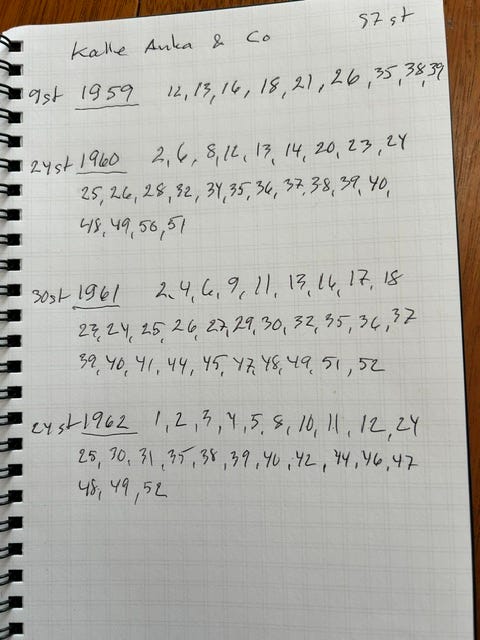 87 st
Kalle Anka & Co
9st 1959 12, 13, 16, 18, 21, 26, 35, 38, 39
24st 1960 2, 6, 8, 12, 13, 14, 20, 23, 24
25, 26, 28, 32, 34, 35, 36, 37, 38, 39, 40,
48, 49, 50, 51
30st 1961 2, 4, 6, 9, 11, 13, 16, 17, 18
23, 24, 25, 26, 27, 29, 30, 32, 35, 36, 37
39, 40, 41, 44, 45, 47, 48, 49, 51, 52
24st 1962 1, 2, 3, 4, 5, 8, 10, 11, 12, 24
25, 30, 31, 35, 38, 39, 40, 42, 44, 46, 47
48, 49, 52